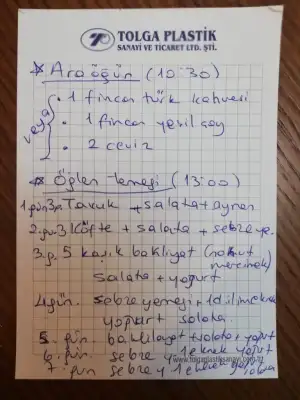 TP TOLGA PLASTİK
SANAYİ VE TİCARET LTD. ŞTİ.
Ara öğün (10:30)
veya
• 1 fincan türk kahvesi
• 1 fincan yeşil çay
• 2 ceviz
Öğlen Yemeği (13:00)
1.gün 3p. Tavuk + salata + ayran
2.gün 3 Köfte + salata + sebze ye.
3.g. 5 kaşık bakliyat (nohut
mercimek)
Salata + yogurt
4.gün. sebze yemeği + 1 dilim ekmek
yogurt salata.
5. gün. bakliyat + salata + yogurt
6. gün. sebze y 1 ekmek yogurt
www.tolgaplastiksanayi.com.tr
7. gün sebze y 1 ekmek salata